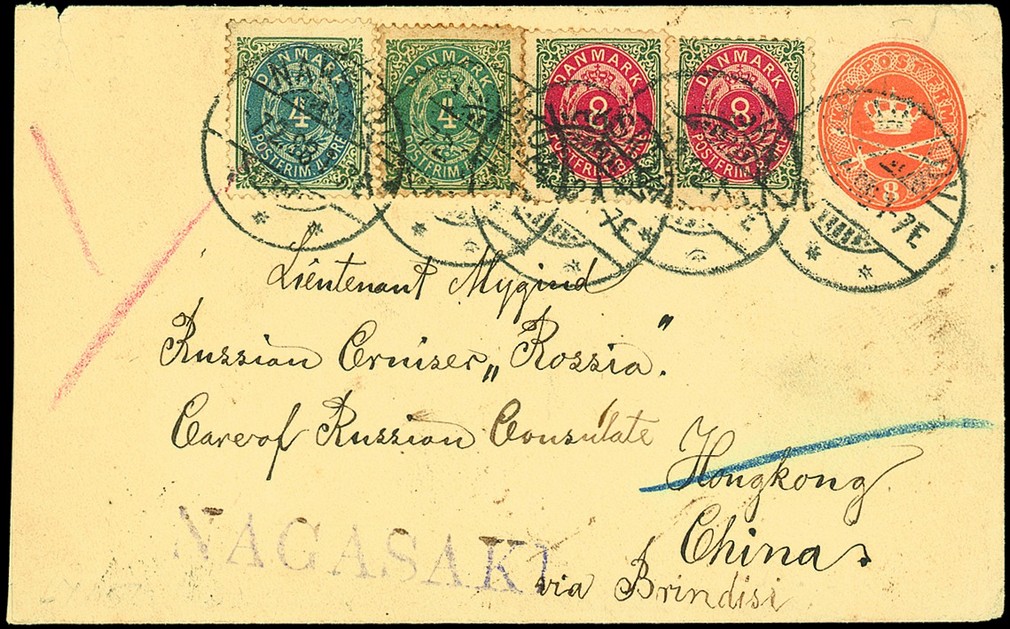 DANMARK 4 POSTFRIM. 4 ØRE
DANMARK 4 POSTFRIM.
DANMARK 8 POSTFRIM.
DANMARK 8 POSTFRIM.
8
7E
7E
Lieutenant Mygind
Russian Cruiser „Rossia“.
Care of Russian Consulate
Hongkong
China.
NAGASAKI
via Brindisi